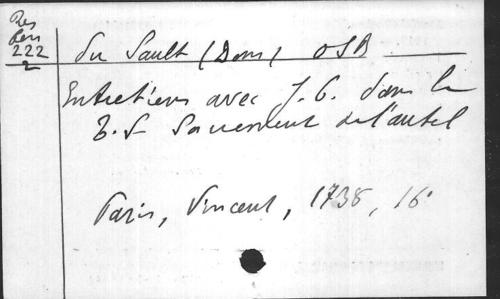 Res
Pers
222
2
du Sault (Dom) OSB
Entretiens avec J. C. dans le
T. S Sacrement de l'autel
Paris, Vincent, 1738, 16°